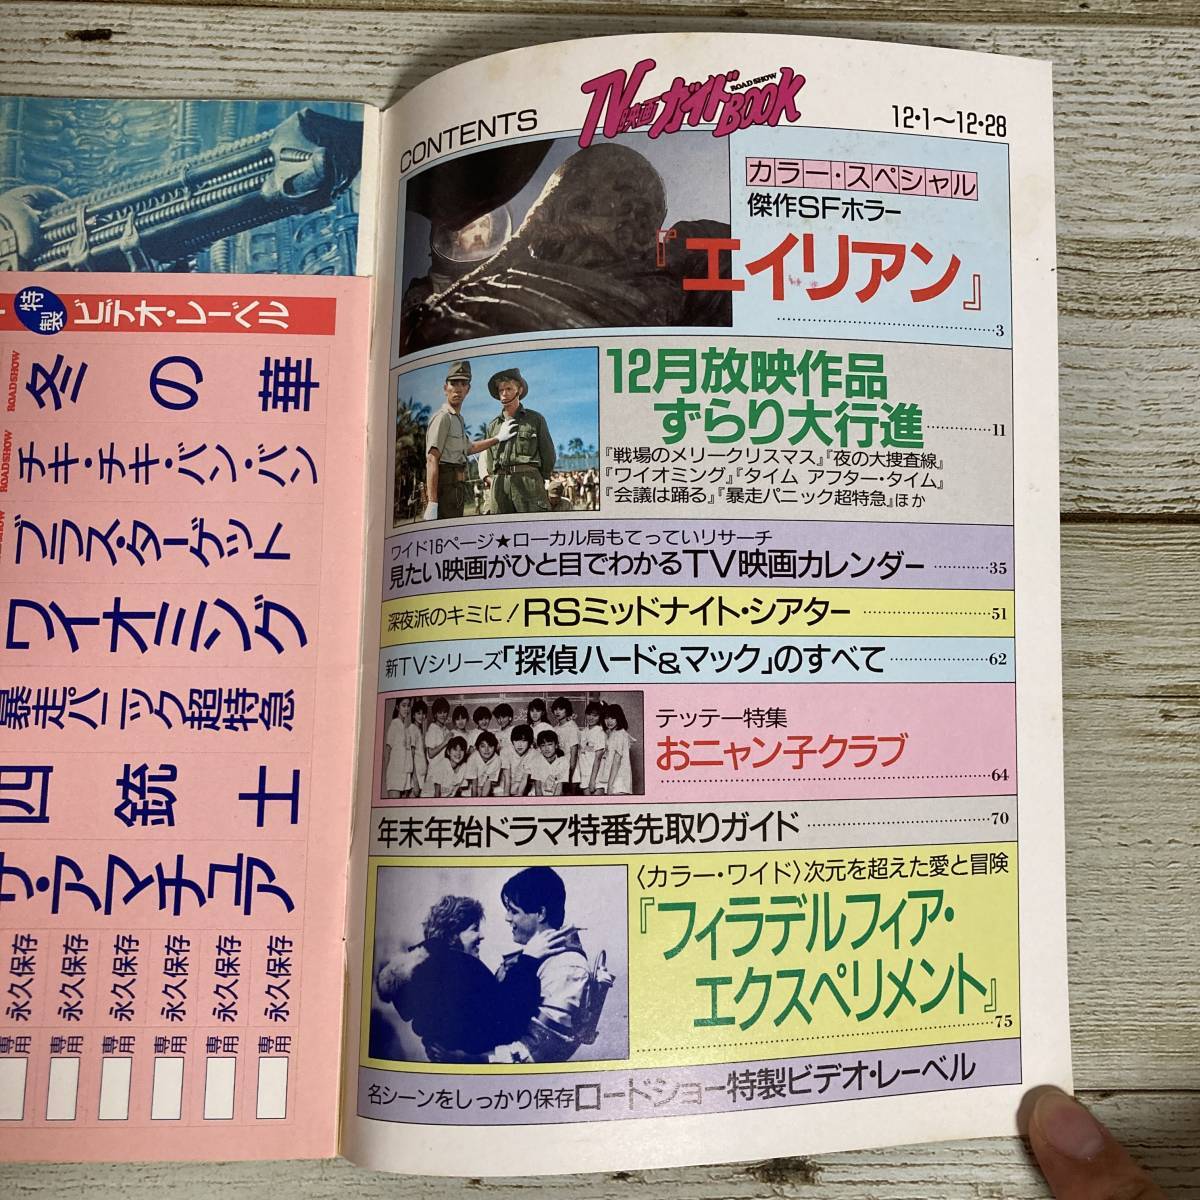 特製
ビデオ・レーベル
ROADSHOW
冬の華
ROADSHOW
チキ・チキ・バン・バン
ブラス・ターゲット
ワイオミング
暴走パニック超特急
四銃士
ザ・アマチュア
永久保存
永久保存
永久保存
永久保存
永久保存
永久保存
専用
専用
専用
専用
専用
専用
CONTENTS
TV映画ガイドBOOK
ROADSHOW
12・1〜12・28
カラー・スペシャル
傑作SFホラー
『エイリアン』
3
12月放映作品
ずらり大行進
11
『戦場のメリークリスマス』『夜の大捜査線』
『ワイオミング』『タイム アフター・タイム』
『会議は踊る』『暴走パニック超特急』ほか
ワイド16ページ★ローカル局もてっていリサーチ
見たい映画がひと目でわかるTV映画カレンダー
35
深夜派のキミに！RSミッドナイト・シアター
51
新TVシリーズ「探偵ハード&マック」のすべて
62
テッテー特集
おニャン子クラブ
64
年末年始ドラマ特番先取りガイド
70
〈カラー・ワイド〉次元を超えた愛と冒険
『フィラデルフィア・
エクスペリメント』
75
名シーンをしっかり保存ロードショー特製ビデオ・レーベル